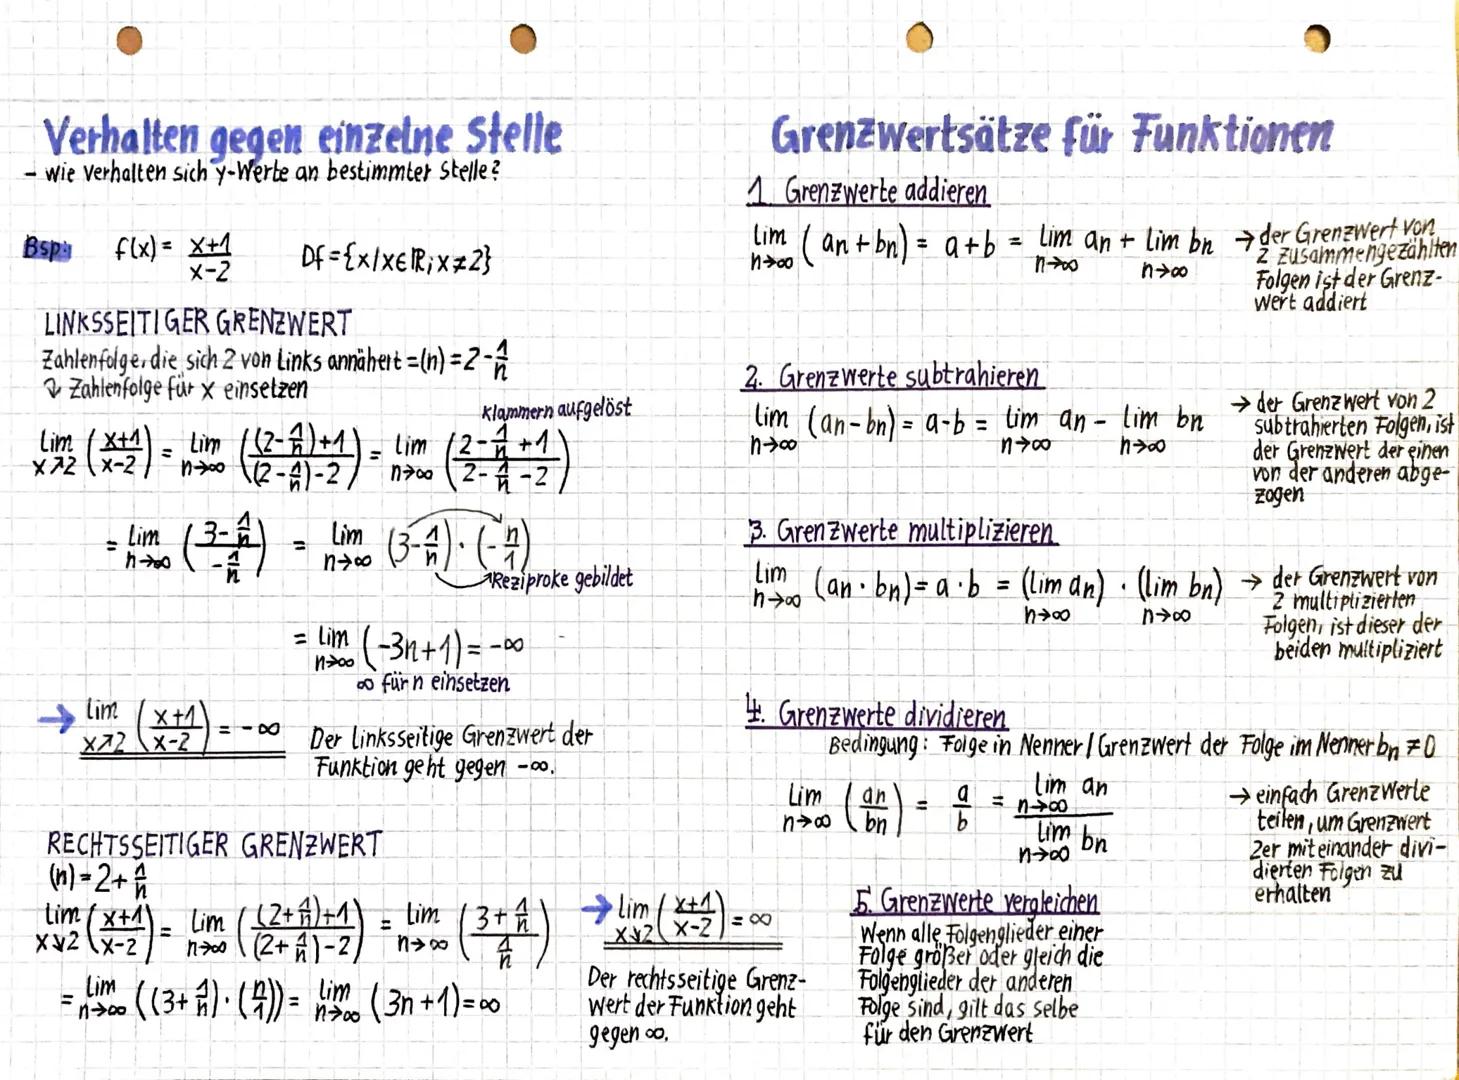 Verhalten gegen einzelne Stelle
- wie verhalten sich y-Werte an bestimmter Stelle?
Bsp.: f(x) = (x+1)/(x-2) Df = {x/x∈ℝ; x≠2}
LINKSSEITIGER GRENZWERT
Zahlenfolge, die sich 2 von Links annähert = (n) = 2 - 1/n
↷ Zahlenfolge für x einsetzen
Klammern aufgelöst
lim x↗2 ((x+1)/(x-2)) = lim n→∞ (((2-1/n)+1)/((2-1/n)-2)) = lim n→∞ ((2-1/n+1)/(2-1/n-2))
= lim n→∞ ((3-1/n)/(-1/n)) = lim n→∞ (3-1/n) · (-n/1)
Reziproke gebildet
= lim n→∞ (-3n+1) = -∞
∞ für n einsetzen
→ lim x↗2 ((x+1)/(x-2)) = -∞
Der linksseitige Grenzwert der
Funktion geht gegen -∞.
RECHTSSEITIGER GRENZWERT
(n) = 2 + 1/n
lim x↘2 ((x+1)/(x-2)) = lim n→∞ (((2+1/n)+1)/((2+1/n)-2)) = lim n→∞ ((3+1/n)/(1/n))
= lim n→∞ ((3+1/n)·(n/1)) = lim n→∞ (3n+1) = ∞
→ lim x↘2 ((x+1)/(x-2)) = ∞
Der rechtsseitige Grenz-
wert der Funktion geht
gegen ∞.
Grenzwertsätze für Funktionen
1. Grenzwerte addieren
lim n→∞ (an + bn) = a+b = lim n→∞ an + lim n→∞ bn
→ der Grenzwert von
2 zusammengezählten
Folgen ist der Grenz-
wert addiert
2. Grenzwerte subtrahieren
lim n→∞ (an - bn) = a-b = lim n→∞ an - lim n→∞ bn
→ der Grenzwert von 2
subtrahierten Folgen, ist
der Grenzwert der einen
von der anderen abge-
zogen
3. Grenzwerte multiplizieren
lim n→∞ (an · bn) = a · b = (lim n→∞ an) · (lim n→∞ bn)
→ der Grenzwert von
2 multiplizierten
Folgen, ist dieser der
beiden multipliziert
4. Grenzwerte dividieren
Bedingung: Folge in Nenner / Grenzwert der Folge im Nenner bn ≠ 0
lim n→∞ (an/bn) = a/b = (lim n→∞ an)/(lim n→∞ bn)
→ einfach Grenzwerte
teilen, um Grenzwert
2er miteinander divi-
dierten Folgen zu
erhalten
5. Grenzwerte vergleichen
Wenn alle Folgenglieder einer
Folge größer oder gleich die
Folgenglieder der anderen
Folge sind, gilt das selbe
für den Grenzwert